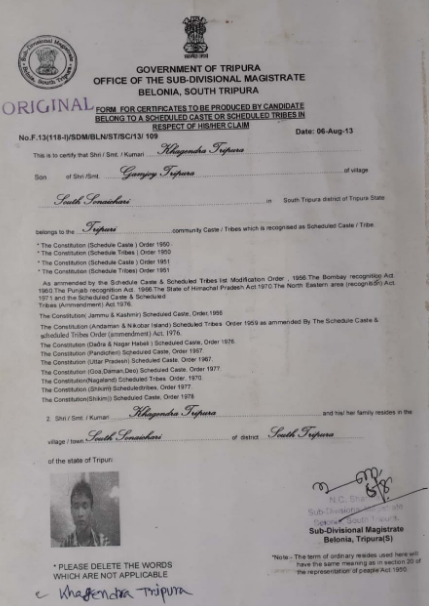 GOVERNMENT OF TRIPURA
OFFICE OF THE SUB-DIVISIONAL MAGISTRATE
BELONIA, SOUTH TRIPURA
ORIGINAL
FORM FOR CERTIFICATES TO BE PRODUCED BY CANDIDATE
BELONG TO A SCHEDULED CASTE OR SCHEDULED TRIBES IN
RESPECT OF HIS/HER CLAIM
No.F.13(118-I)/SDM/BLN/ST/SC/13/ 109
Date: 06-Aug-13
This is to certify that Shri / Smt. / Kumari Khagendra Tripura
Son of Shri /Smt. Gamjoy Tripura of village
South Sonaichari in South Tripura district of Tripura State
belongs to the Tripuri community Caste / Tribes which is recognised as Scheduled Caste / Tribe.
* The Constitution (Schedule Caste ) Order 1950
* The Constitution (Schedule Tribes ) Order 1950
* The Constitution (Schedule Caste) Order 1951
* The Constitution (Schedule Tribes) Order 1951
As ammended by the Schedule Caste & Scheduled Tribes list Modification Order , 1956.The Bombay recognition Act.
1960.The Punjab recognition Act. 1966.The State of Himachal Pradesh Act 1970.The North Eastern area (recognition) Act.
1971 and the Scheduled Caste & Scheduled
Tribes (Ammendment) Act.1976.
The Constitution( Jammu & Kashmir) Scheduled Caste, Order,1956
The Constitution (Andaman & Nikobar Island) Scheduled Tribes Order 1959 as ammended By The Schedule Caste &
scheduled Tribes Order (ammendment) Act. 1976.
The Constitution (Dadra & Nagar Habeli ) Scheduled Caste, Order 1976.
The Constitution (Pandicheri) Scheduled Caste, Order 1967.
The Constitution (Uttar Pradesh) Scheduled Caste, Order 1967.
The Constitution (Goa,Daman,Deo) Scheduled Caste, Order 1977.
The Constitution(Nagaland) Scheduled Tribes Order, 1970.
The Constitution (Shikim) Scheduledtribes, Order 1977.
The Constitution(Shikim)) Scheduled Caste, Order 1978
2. Shri / Smt. / Kumari Khagendra Tripura and his/ her family resides in the
village / town South Sonaichari of district South Tripura
of the state of Tripuri
Sub-Divisional
Sub-Divisional Magistrate
Belonia, Tripura(S)
* PLEASE DELETE THE WORDS
WHICH ARE NOT APPLICABLE
Khagendra Tripura
*Note - The term of ordinary resides used here will
have the same meaning as in section 20 of
the representation of people Act 1950